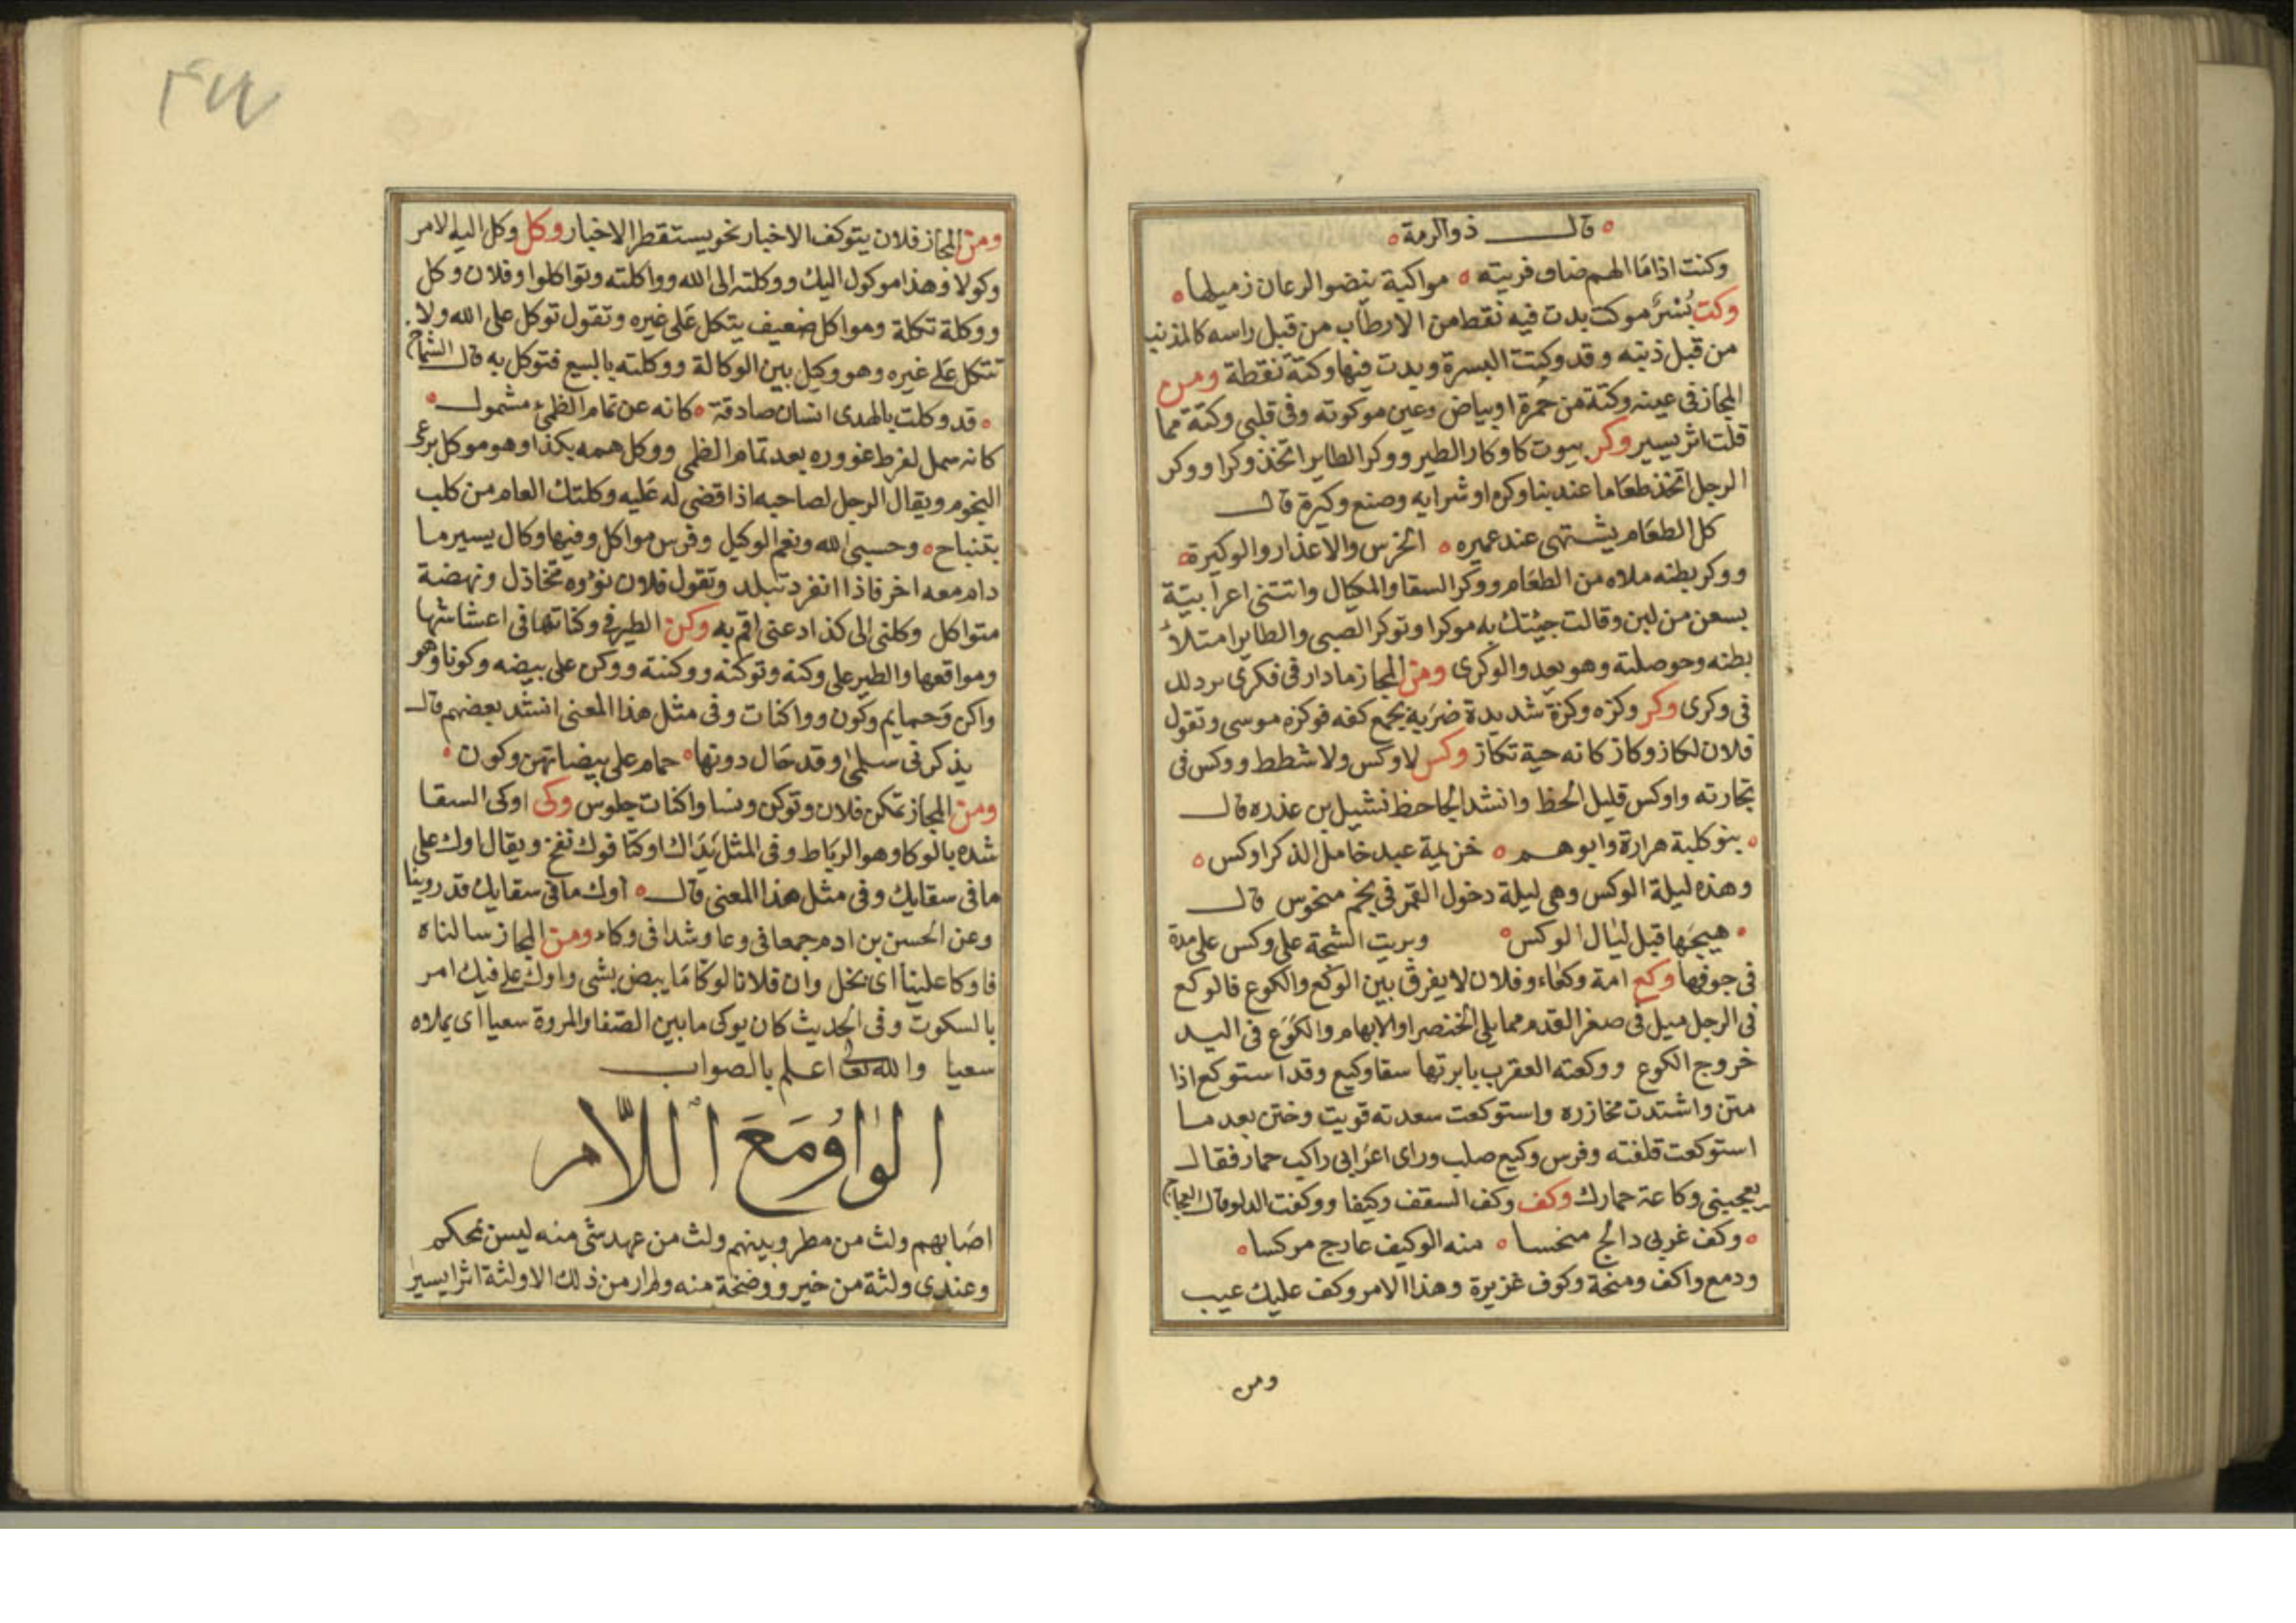 قال ذو الرمة
وكنت اذا ما الهم ضاف قريته مواكبة ينضو الرعان ذميلها
وكت بُسْرٌ موكت بدت فيه نقط من الارطاب من قبل راسه كالمذنب
من قبل ذنبه وقد وكتت البسرة وبدت فيها وكتة نقطة ومن
المجاز فى عينه وكتة من حُمرة او بياض وعين موكوته وفى قلبى وكتة مما
قلت اثر يسير وكر بيوت كاوكار الطير ووكر الطاير اتخذ وكرا ووكر
الرجل اتخذ طعاما عند بنا وكره او شرايه وصنع وكيرة قال
كل الطعام يشتهى عند عميره الخرس والاعذار والوكيرة
ووكر بطنه ملاه من الطعام ووكر السقا والمكيال واتتنى اعرابيّة
بسعن من لبن وقالت جيئتك به موكرا وتوكر الصبى والطاير امتلأ
بطنه وحوصلته وهو يعدو الوكرى ومن المجاز ما دار فى فكرى
فى وكرى وكز وكزه وكزة شديدة ضربه بجمع كفه فوكزه موسى وتقول
فلان لكاز وكاز كانه حية تكاز وكس لا وكس ولا شطط ووكس فى
تجارته واوكس قليل الحظ وانشد الجاحظ نشيل بن عذره قال
بنو كلبة هرارة وابوهم خزيمة عبد خامل الذكر اوكس
وهذه ليلة الوكس وهى ليلة دخول القمر فى نجم منحوس قال
هيجها قبل ليال الوكس وبريت الشجة على وكس على مدة
فى جوفها وكع امة وكعاء وفلان لا يفرق بين الوكع والكوع فالوكع
فى الرجل ميل فى صغر القدم مما يلى الخنصر او الابهام والكوع فى اليد
خروج الكوع ووكعته العقرب بابرتها سقا وكيع وقد استوكع اذا
متن واشتدت مخازره واستوكعت معدته قويت وختن بعد ما
استوكعت قلفته وفرس وكيع صلب وراى اعرابى راكب حمار فقال
يعجبنى وكاعة حمارك وكف وكف السقف وكيفا ووكفت الدلو قال العجاج
وكف غربى دالج منحسا منه الوكيف عارج مركسا
ودمع واكف ومنحة وكوف غزيرة وهذا الامر وكف عليك عيب
ومن
ومن المجاز فلان يتوكف الاخبار نحو يستقطر الاخبار وكل وكل اليه الامر
وكولا وهذا موكول اليك ووكلته الى الله وواكلته وتواكلوا وفلان وكل
ووكلة تكلة ومواكل ضعيف يتكل على غيره وتقول توكل على الله ولا
تتكل على غيره وهو وكيل بين الوكالة ووكلته بالبيع فتوكل به قال الشماخ
قد وكلت بالهدى انسان صادقة كانه عن تمام الظمئ مشمول
كانه سمل لفرط غووره بعد تمام الظمى ووكل همه بكذا وهو موكل برعى
النجوم ويقال الرجل لصاحبه اذا قضى له عليه وكلتك العام من كلب
بتنباح وحسبى الله ونعم الوكيل وفرس مواكل وفيها وكال يسير ما
دام معه اخر فاذا انفرد تبلد وتقول فلان نوءه متخاذل ونهضة
متواكل وكلنى الى كذا دعنى اقم به وكن الطير فى وكناتها فى اعشاشها
ومواقعها والطير على وكنه وتوكنه ووكنته ووكن على بيضه وكونا وهو
واكن وحمايم وكون وواكنات وفى مثل هذا المعنى انشد بعضهم قال
يذكرنى سلمى وقد حال دونها حمام على بيضاتهن وكون
ومن المجاز تمكن فلان وتوكن ونسا واكنات جلوس وكى اوكى السقا
شده بالوكا وهو الرباط وفى المثل يَدَاك اوكتا فوك نفخ ويقال اوك على
ما فى سقايك وفى مثل هذا المعنى قال اوك ما فى سقايك قد روينا
وعن الحسن بن ادم جمعا فى وعا وشدا فى وكاء ومن المجاز سالناه
فاوكا علينا اى بخل وان فلانا لوكا ما يبض بشى واوك على فيك امر
بالسكوت وفى الحديث كان يوكى ما بين الصفا والمروة سعيا اى يملاه
سعيا والله تعالى اعلم بالصواب
الواوُ مَعَ اللّام
اصابهم ولث من مطر وبينهم ولث من عهد شى منه ليس بمحكم
وعندى ولثة من خير ووضخة منه ولم ار من ذلك الا ولثة اثرا يسيرا